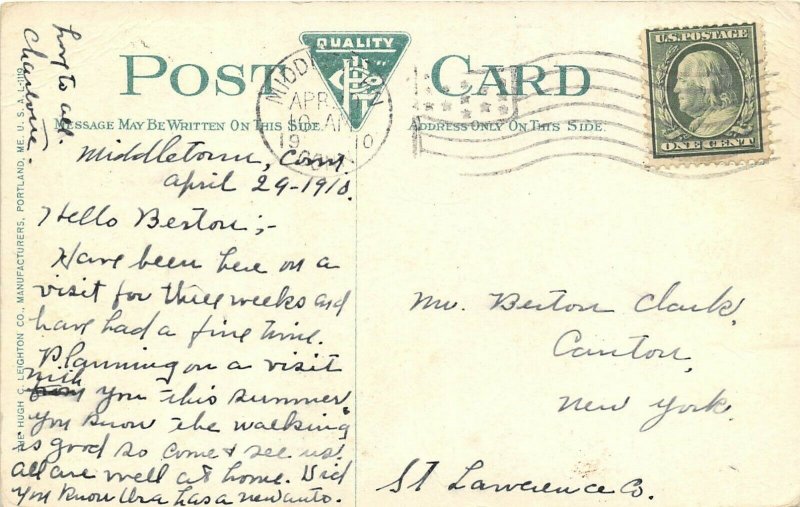 POST CARD
QUALITY
MESSAGE MAY BE WRITTEN ON THIS SIDE.
ADDRESS ONLY ON THIS SIDE.
U.S. POSTAGE
ONE CENT
APR
10 AM
1910
THE HUGH C. LEIGHTON CO., MANUFACTURERS, PORTLAND, ME. U. S. A.
Middletown, Conn.
April 29-1910.
Hello Berton;-
Have been here on a
visit for three weeks and
have had a fine time.
Planning on a visit
with
from you this summer
you know the walking
is good so come & see us.
all are well at home. Did
you know Ura has a new auto.
to all.
Charlotte.
Mr. Berton Clark,
Canton,
New York.
St Lawrence Co.